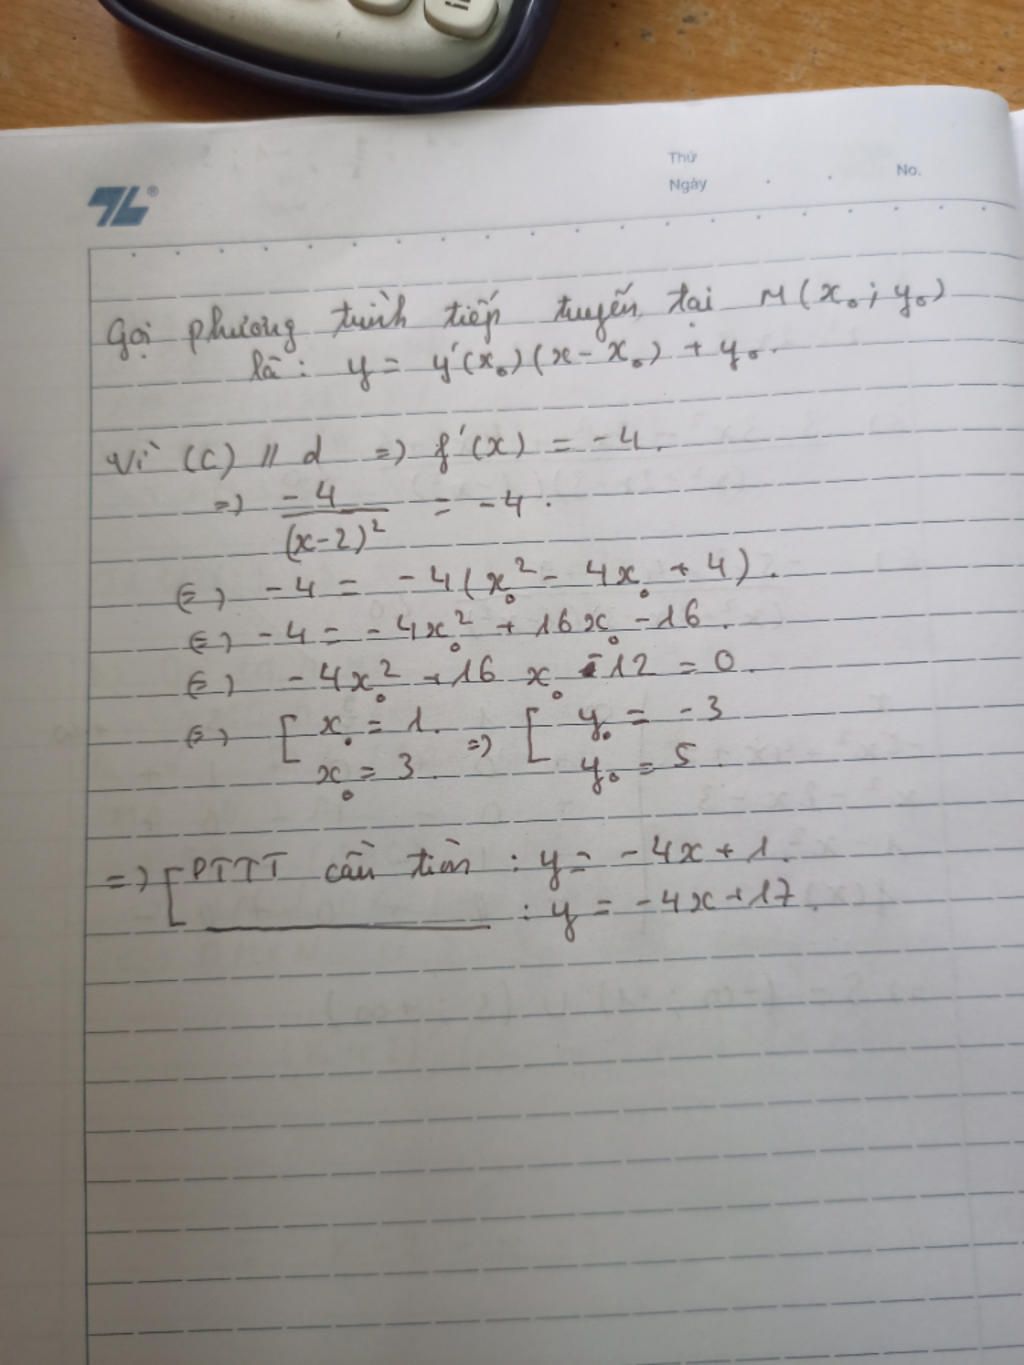 Thứ
Ngày . . No.
TL®
Gọi phương trình tiếp tuyến tại M(x₀; y₀)
là: y = y'(x₀)(x - x₀) + y₀.
Vì (C) // d => f'(x) = -4.
=> -4/(x-2)² = -4.
(=) -4 = -4(x₀² - 4x₀ + 4).
(=) -4 = -4x₀² + 16x₀ - 16.
(=) -4x₀² + 16x₀ - 12 = 0.
(=) [ x₀ = 1. => [ y₀ = -3
x₀ = 3. y₀ = 5.
=> [ PTTT cần tìm : y = -4x + 1.
________ : y = -4x + 17.